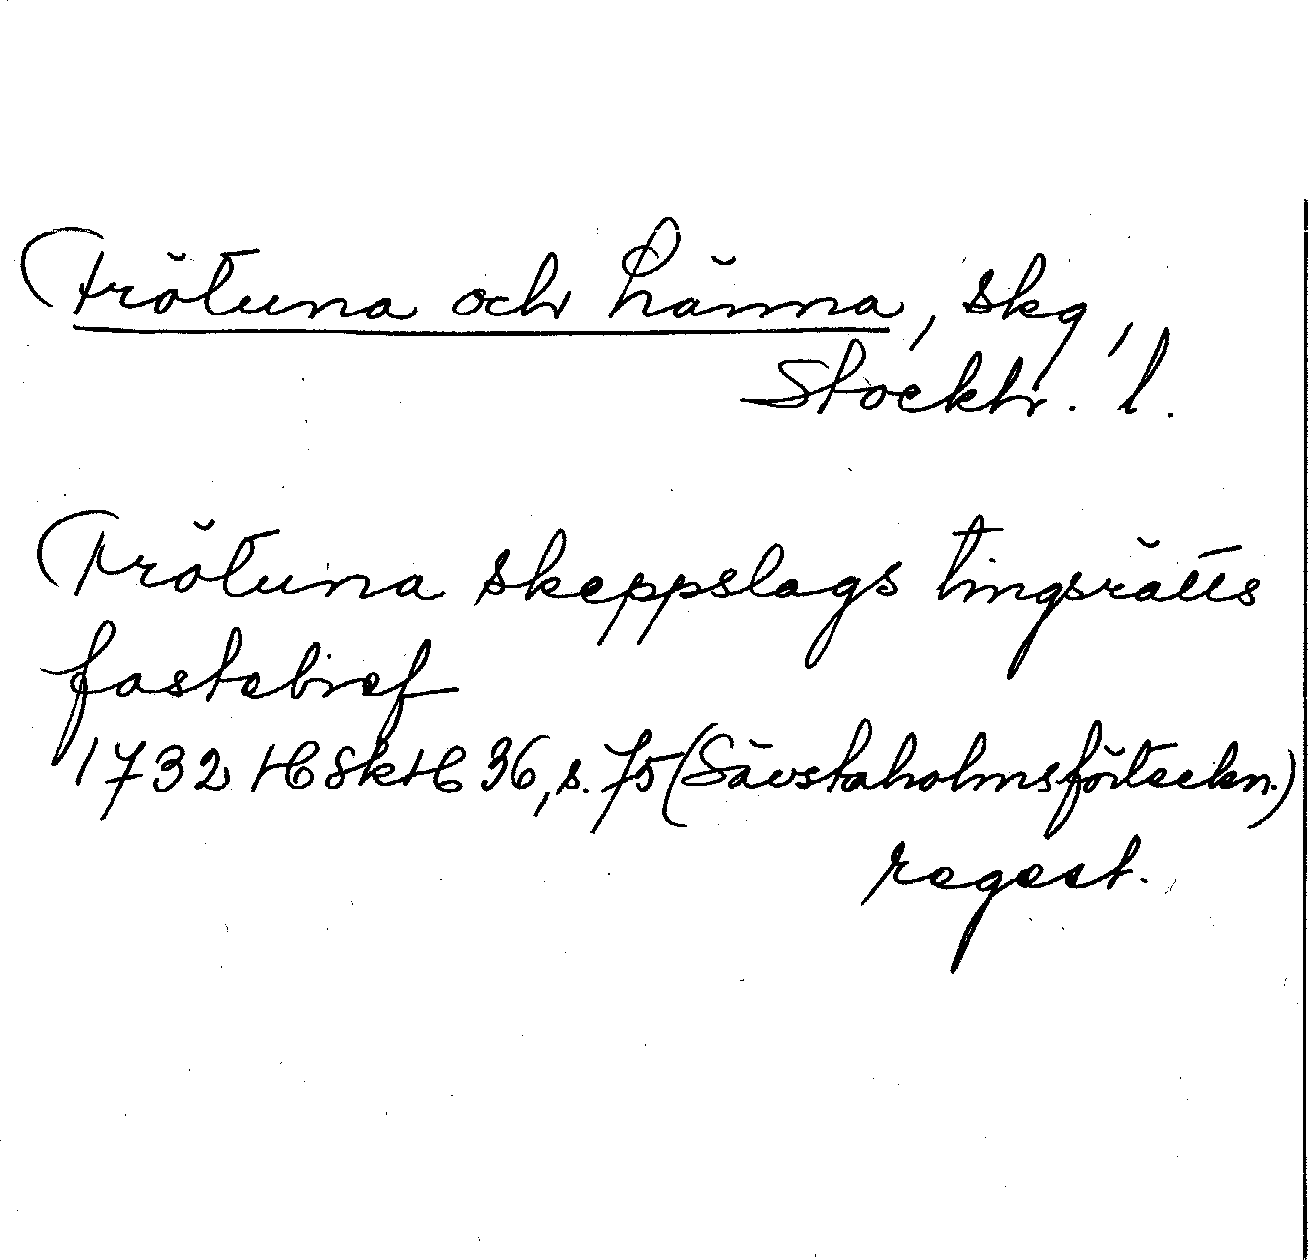 Frötuna och Länna, skg,
Stockh. l.
Frötuna skeppslags tingsrätts
fastebref
1732 HSkH 36, s. 75 (Sävstaholmsförteckn.)
regest.